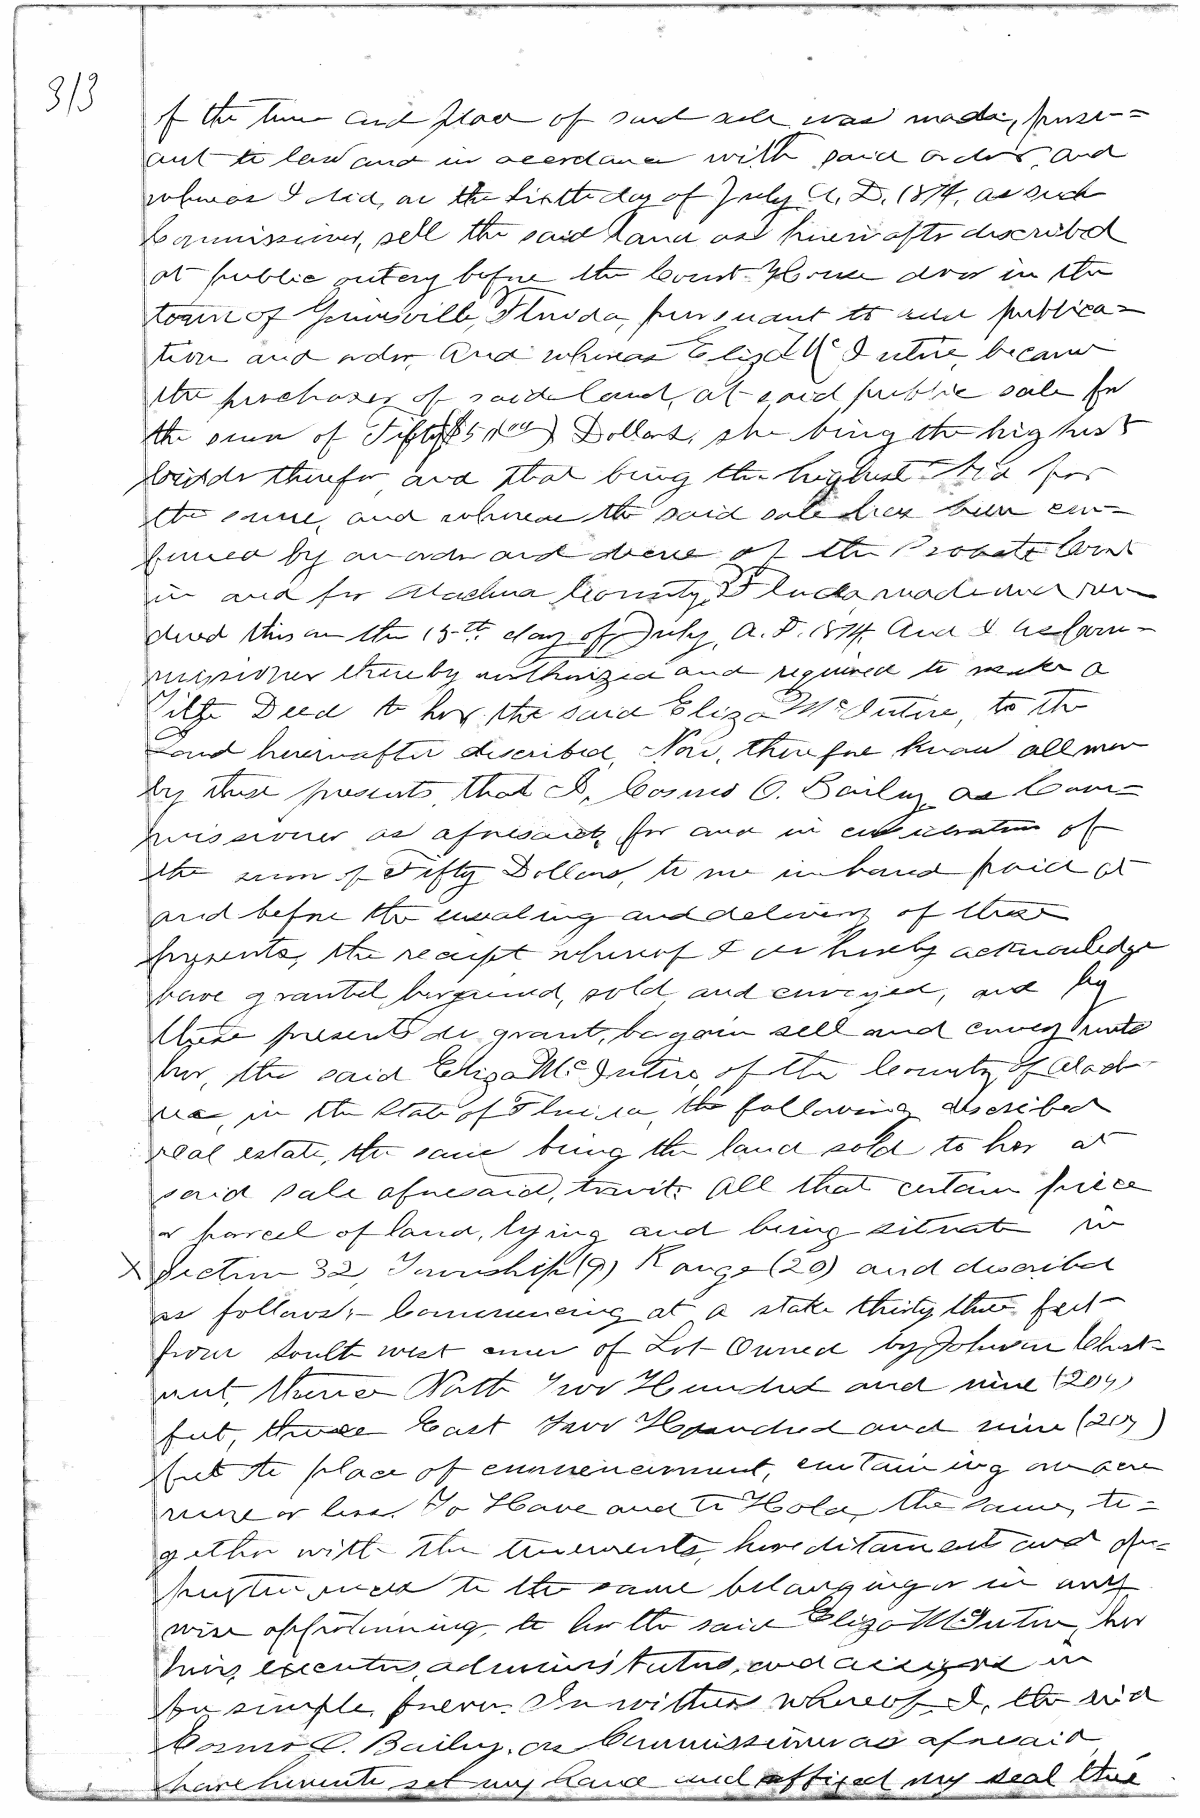 313
of the time and place of said sale was made, pursu=
ant to law and in accordance with said order, and
whereas I did, on the sixth day of July A. D. 1874, as such
Commissioner, sell the said land as hereinafter described
at public outcry before the Court House door in the
town of Gainesville, Florida, pursuant to said publica=
tion and order, And whereas Eliza McIntire, became
the purchaser of said land, at said public sale for
the sum of Fifty Dollars, she being the highest
bidder therefor, and that being the highest bid for
the same, and whereas the said sale has been con=
firmed by an order and decree of the Probate Court
in and for Alachua County, Florida, made and ren
dered this on the 15th day of July, A. D. 1874, And I as Com=
missioner thereby authorized and required to make a
Title Deed to her, the said Eliza McIntire, to the
land hereinafter described, Now, therefore know all men
by these presents, that I, Cosmo O. Bailey, as Com=
missioner as aforesaid, for and in consideration of
the sum of Fifty Dollars, to me in hand paid at
and before the ensealing and delivery of these
presents, the receipt whereof I do hereby acknowledge
have granted, bargained, sold, and conveyed, and by
these presents do grant, bargain sell and convey unto
her, the said Eliza McIntire, of the County of Alach
ua, in the State of Florida, the following described
real estate, the same being the land sold to her at
said sale aforesaid, towit: All that certain piece
or parcel of land, lying and being situate in
X Section 32, Township (9) Range (20) and described
as follows:- Commencing at a stake thirty three feet
from South west corner of Lot Owned by Johnson Chest-
nut, thence North Two Hundred and nine (209)
feet, thence East Two Hundred and nine (209)
feet to place of commencement, containing one acre
more or less. To Have and to Hold, the same, to=
gether with the tenements, hereditament and ap=
purtenances to the same belonging or in any
wise appertaining, to her the said Eliza McIntire, her
heirs, executors, administrators, and assigns in
fee simple, forever. In witness whereof, I, the said
Cosmo O. Bailey, as Commissioner as aforesaid,
have hereunto set my hand and affixed my seal this